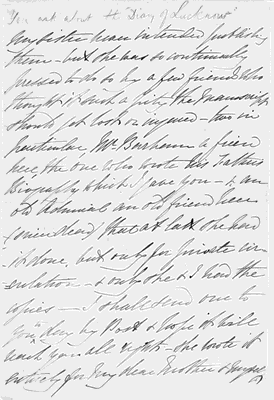 You ask about the "Diary of Lucknow"
My sister never intended publishing
them - but she was so continually
pressed to do so by a few friends who
thought it such a pity the Manuscript
should be lost or injured - two in
particular Mr a friend
here, the one who wrote his Fathers
Biography which I gave you - & an
old Admiral an old friend here
(since dead) that at last she had
it done, but only for private cir-
culation - & only she & I had the
copies - I shall send one to
you today by Post & hope it will
reach you all right - she wrote it
entirely for my dear Mother & myself